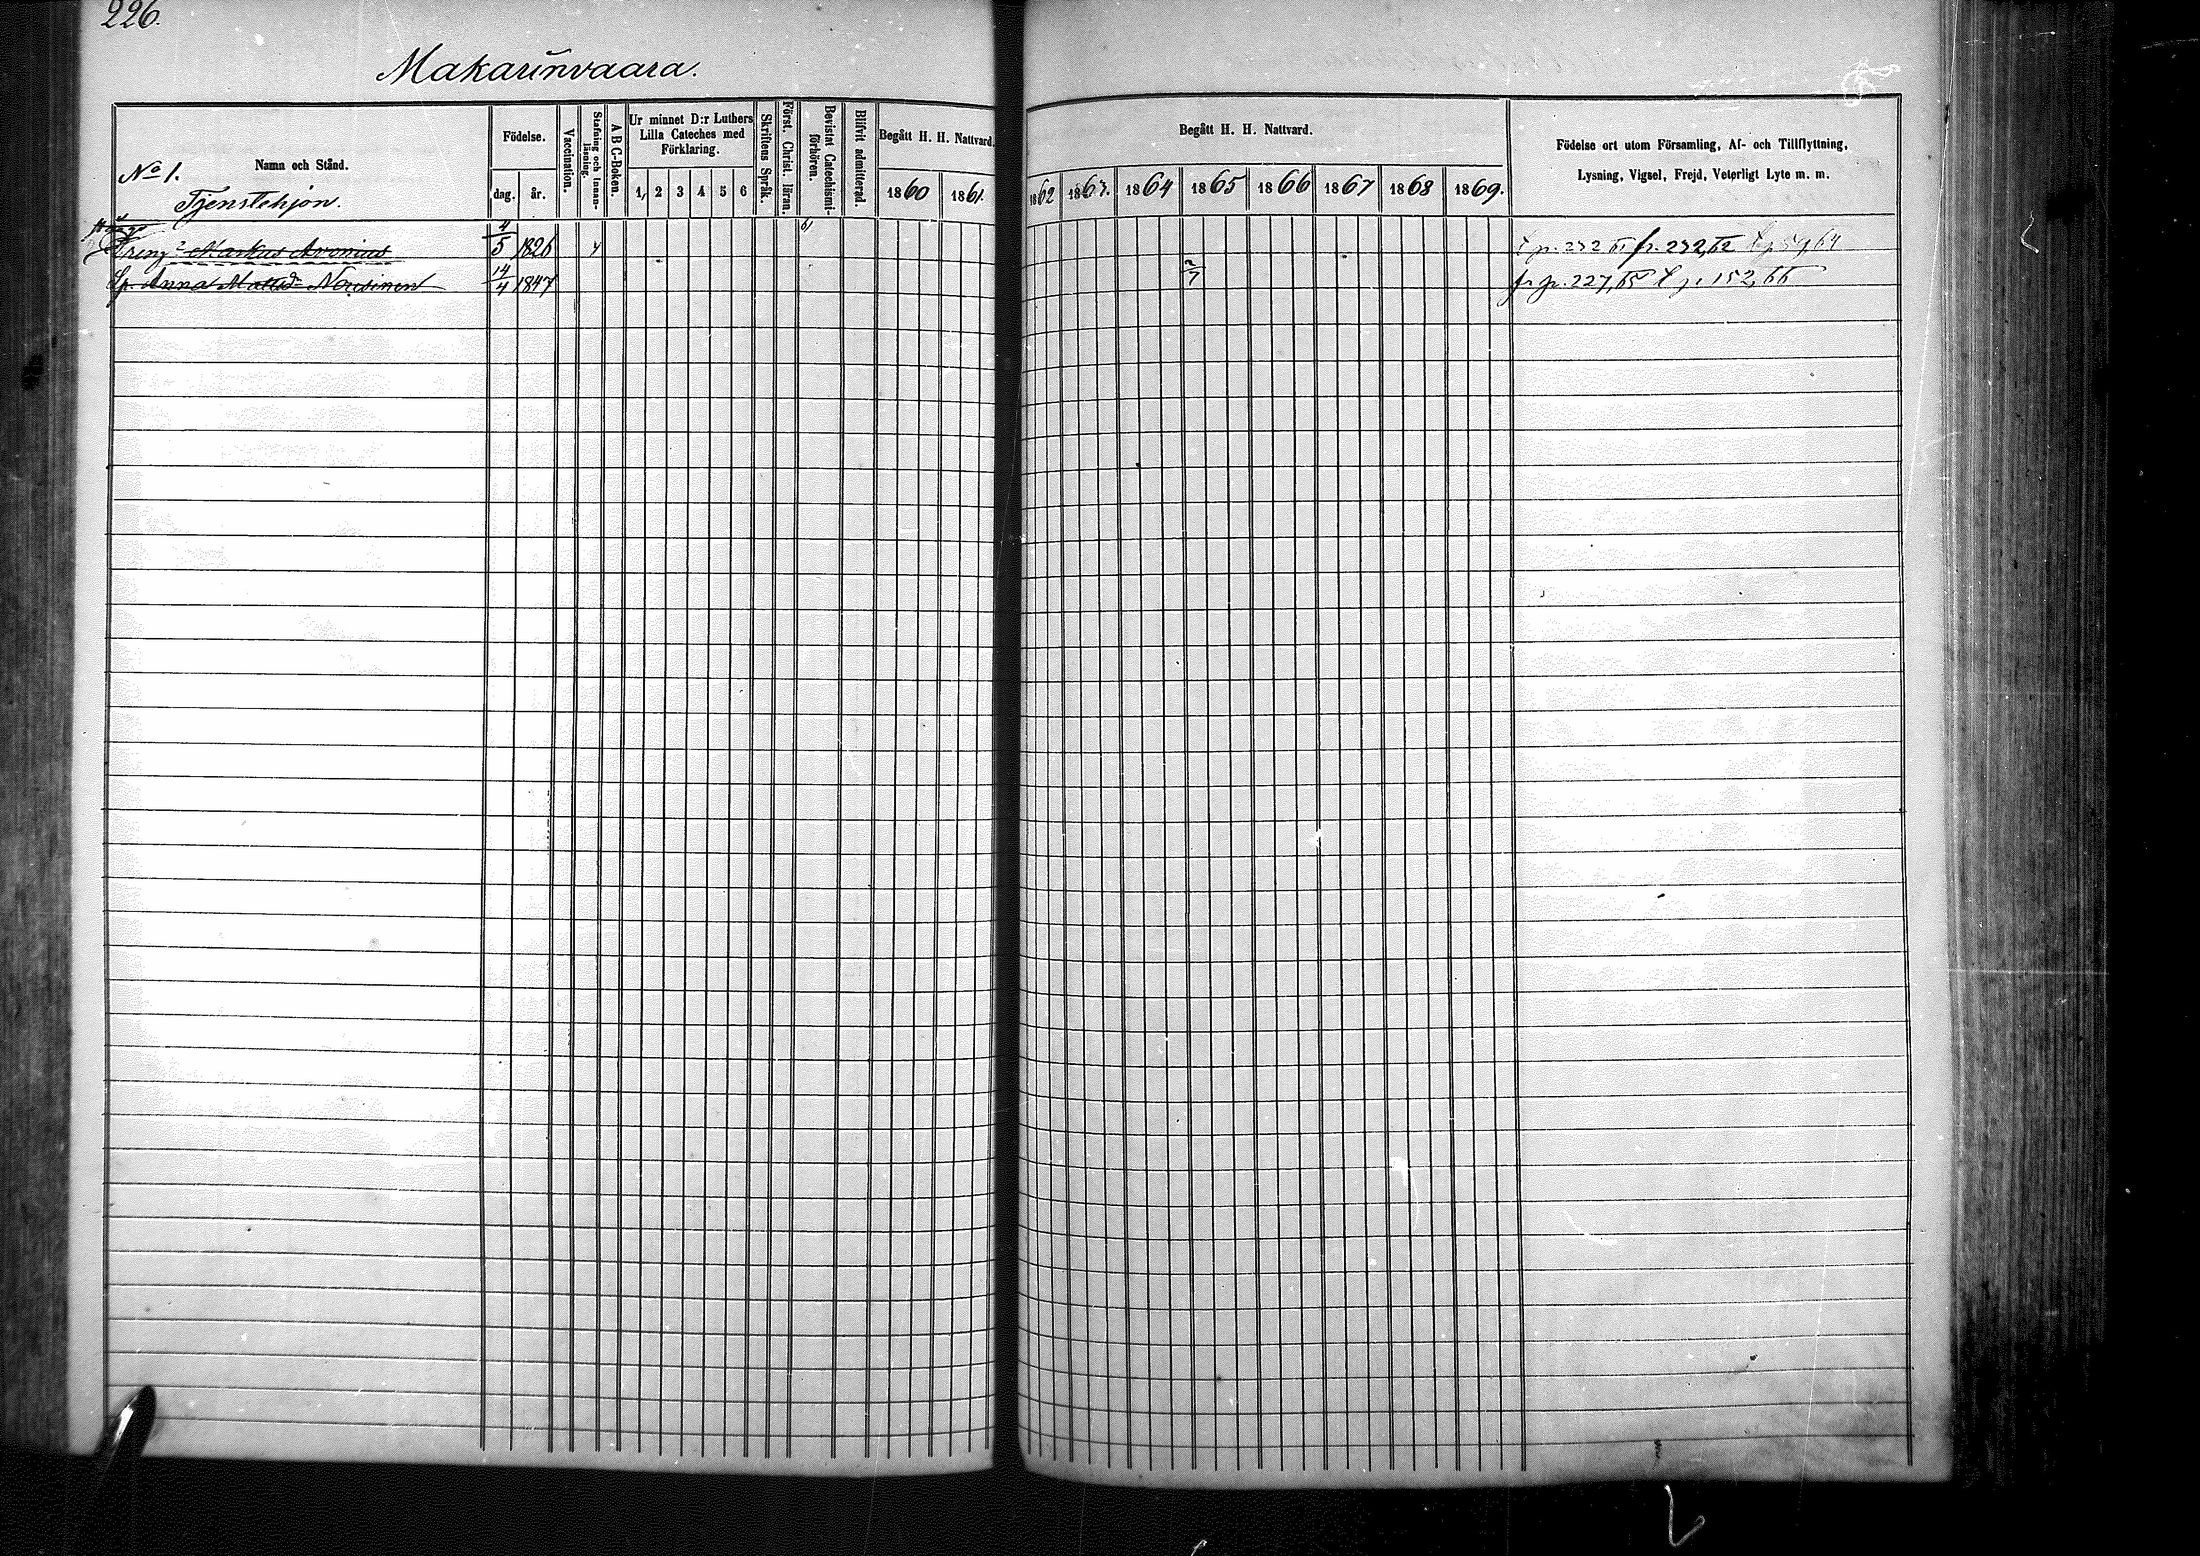 226.
Makarinvaara.
Namn och Stånd.
No 1.
Tjenstehjon.
Födelse.
dag. år.
Vaccination.
Stafning och Innanläsning.
A B C-Boken.
Ur minnet D:r Luthers Lilla Cateches med Förklaring.
1, 2 3 4 5 6
Skriftens Språk.
Först. Christ. läran.
Bevistat Catechismi-förhören.
Blifvit admitterad.
Begått H. H. Nattvard.
1860 1861.
Begått H. H. Nattvard.
1862 1863. 1864 1865 1866 1867 1868 1869.
Födelse ort utom Församling, Af- och Tillflyttning,
Lysning, Vigsel, Frejd, Veterligt Lyte m. m.
Dreng Markus Aronius 4/5 1826 61 t. p. 232 61 fr. 232, 62
Anna Mattsd Nousinen 14/4 1847 2/7 fr p. 227, 65 t p. 152, 66